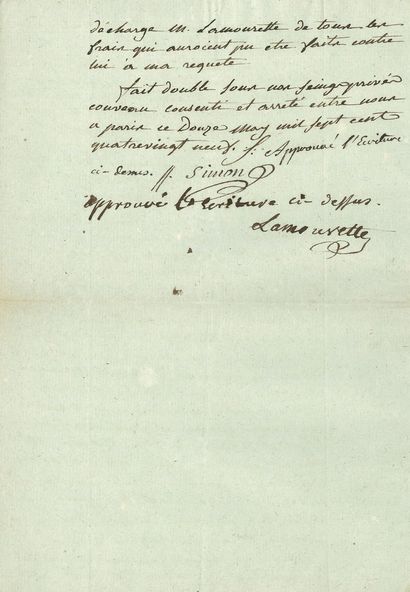 décharge M. Lamourette de tous les
frais qui auroient pu etre faits contre
lui à ma requete
fait double sous nos seings privés
convenu consenti et arreté entre nous
a paris ce Douze May mil sept cent
quatrevingt neuf. Approuvé l'Ecriture
ci-dessus. Simon
approuvé l'ecriture ci-dessus.
Lamourette